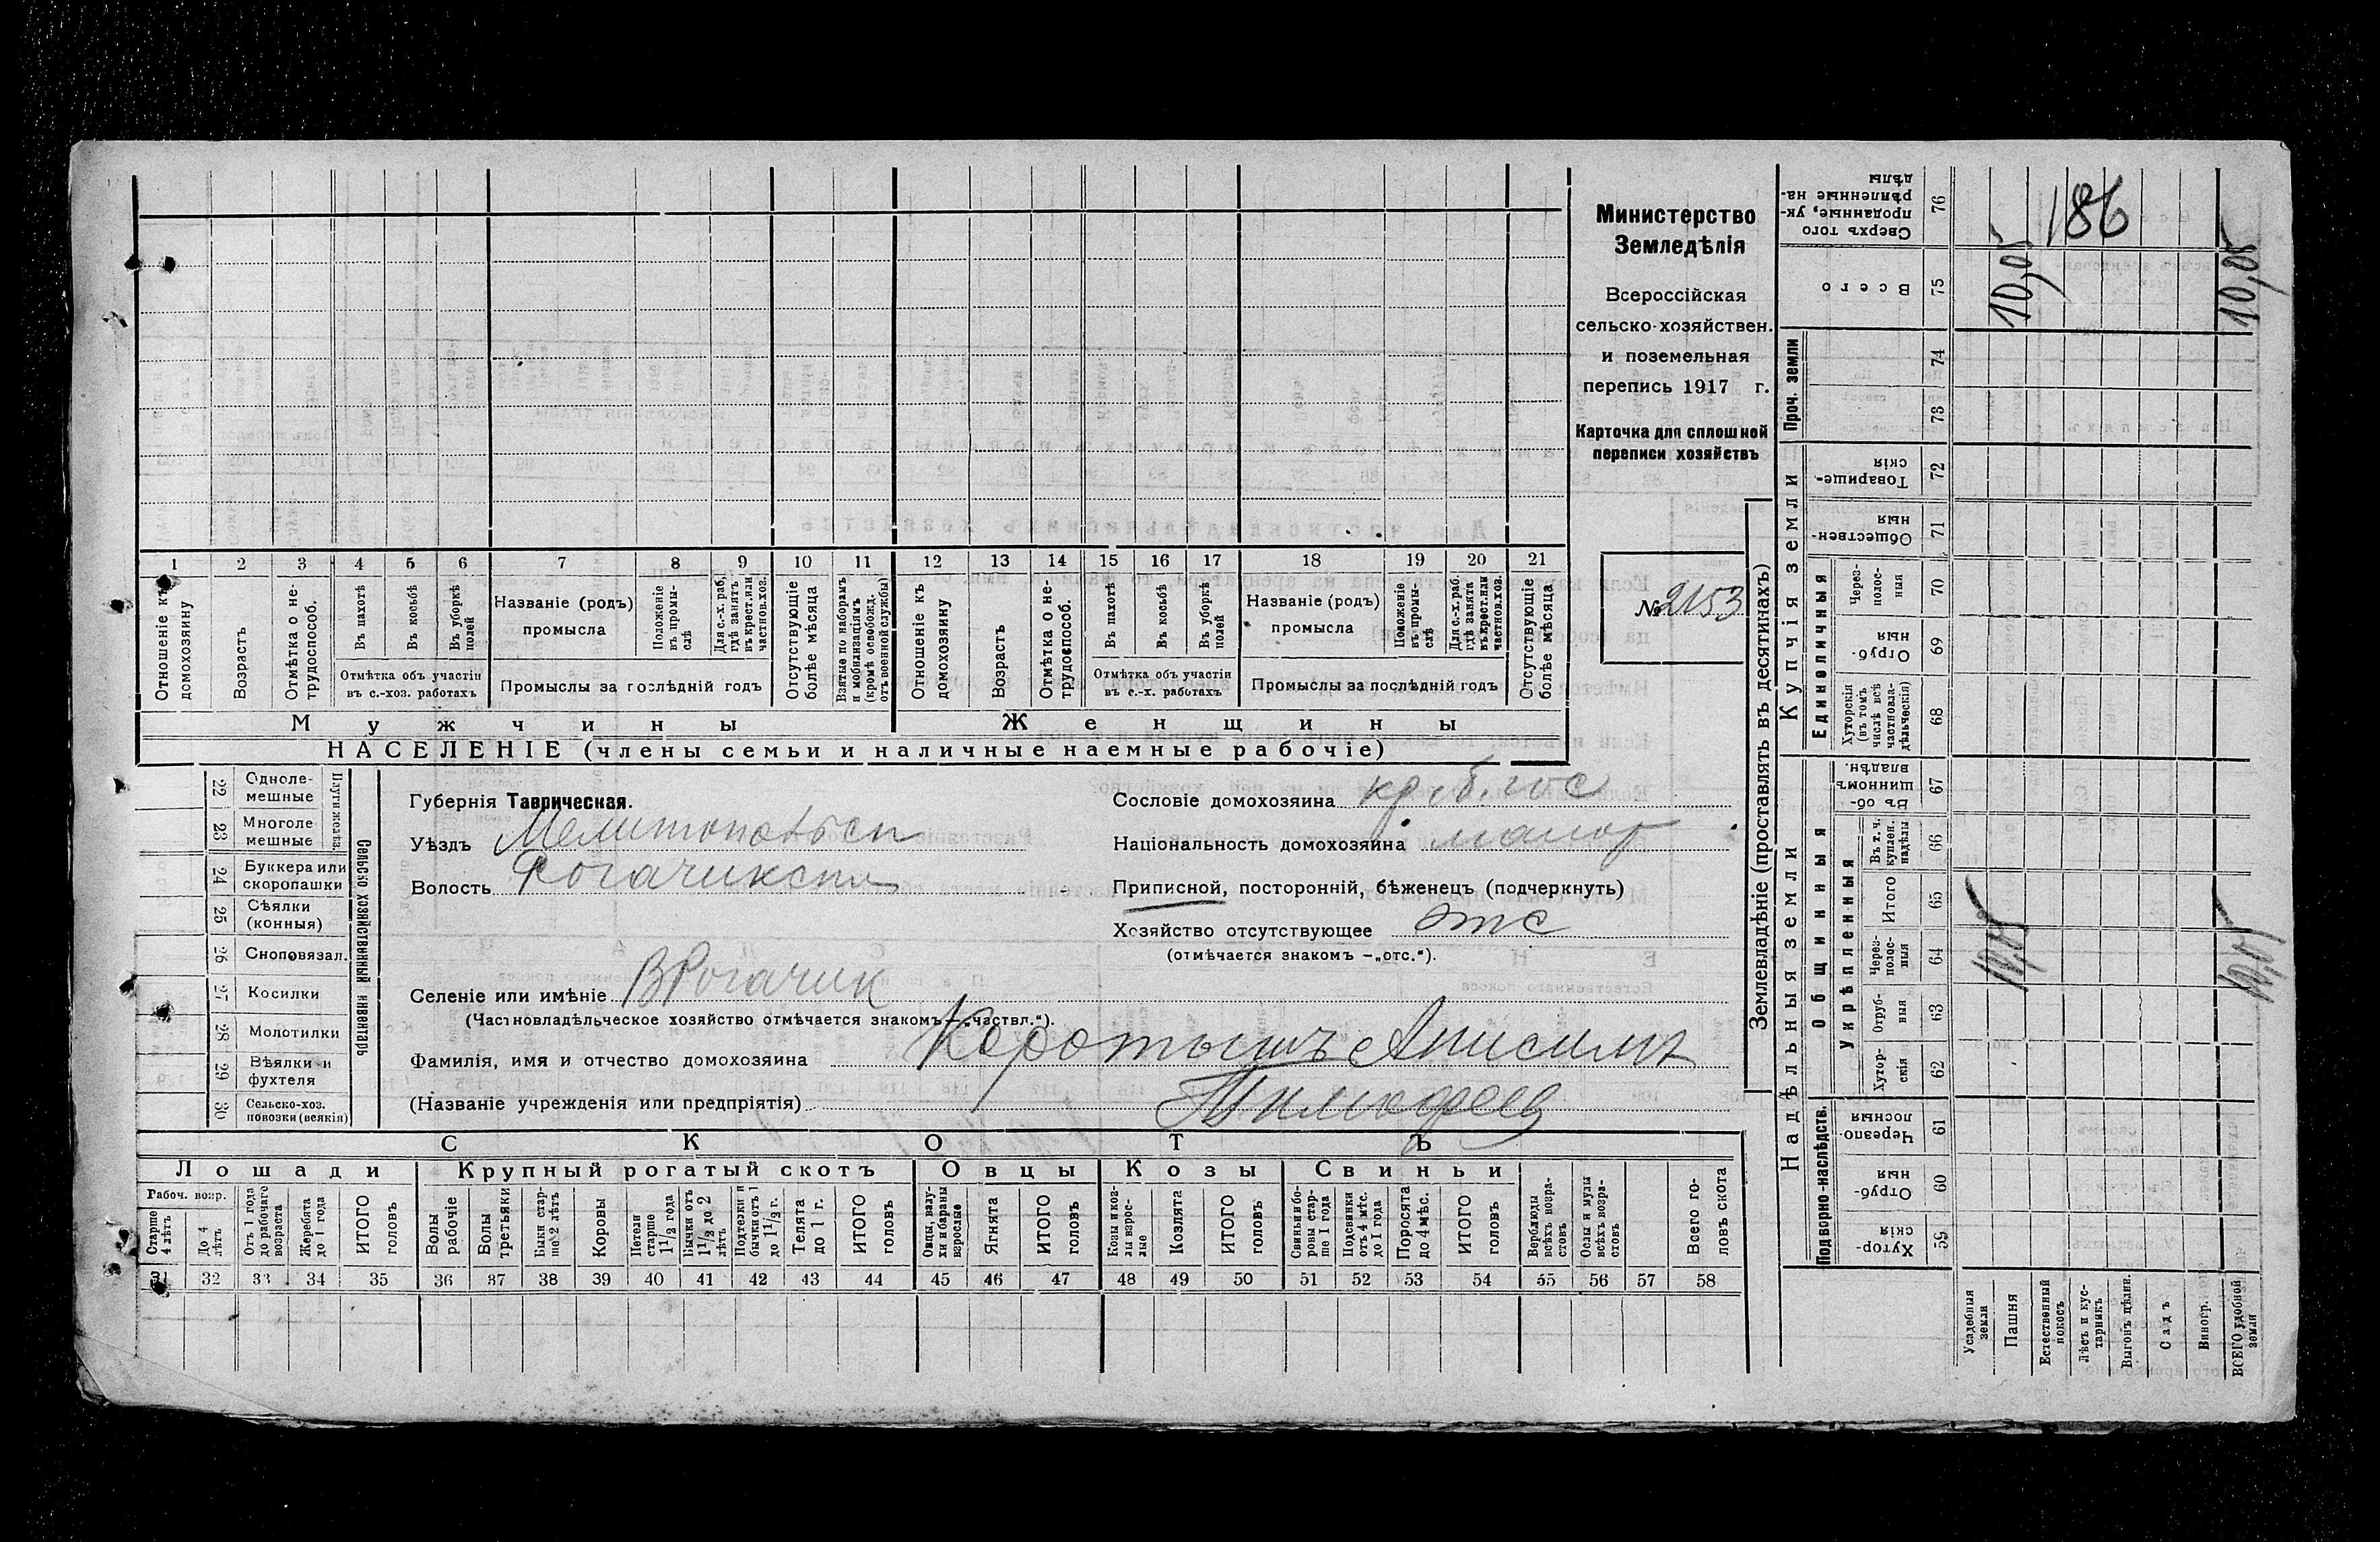 Министерство
Земледѣлія
Всероссійская
сельско-хозяйствен.
и поземельная
перепись 1917 г.
Карточка для сплошной
переписи хозяйствъ
№ 2153
1 2 3 4 5 6 7 8 9 10 11 12 13 14 15 16 17 18 19 20 21
Отношеніе къ домохозяину
Возрастъ
Отмѣтка о нетрудоспособ.
Въ пахотѣ
Въ косьбѣ
Въ уборкѣ полей
Отмѣтка объ участіи
въ с.-хоз. работахъ
Названіе (родъ)
промысла
Положеніе въ промыслѣ
Для с.-х. раб. гдѣ занятъ въ крест. или частнов. хоз.
Промыслы за послѣдній годъ
Отсутствующіе болѣе мѣсяца
Взятые по наборамъ и мобилизаціямъ (кромѣ освобожд. отъ военной службы)
Отношеніе къ домохозяину
Возрастъ
Отмѣтка о нетрудоспособ.
Въ пахотѣ
Въ косьбѣ
Въ уборкѣ полей
Отмѣтка объ участіи
въ с.-х. работахъ
Названіе (родъ)
промысла
Положеніе въ промыслѣ
Для с.-х. раб. гдѣ занята въ крест. или частнов. хоз.
Промыслы за послѣдній годъ
Отсутствующіе болѣе мѣсяца
Мужчины
Женщины
НАСЕЛЕНІЕ (члены семьи и наличные наемные рабочіе)
22 Одноле-
мешные
23 Многоле
мешные
Плуги желѣз.
24 Буккера или
скоропашки
25 Сѣялки
(конныя)
26 Сноповязал.
27 Косилки
28 Молотилки
29 Вѣялки и
фухтеля
30 Сельско-хоз.
повозки (всякія)
Сельско хозяйственный инвентарь
Губернія Таврическая.
Уѣздъ Мелитопольск
Волость Рогачикская
Селеніе или имѣніе ВРогачик
(Частновладѣльческое хозяйство отмѣчается знакомъ —„частвл.“).
Фамилія, имя и отчество домохозяина Коротышъ Анисимъ
(Названіе учрежденія или предпріятія) Тимофеев
Сословіе домохозяина
Національность домохозяина малор
Приписной, посторонній, бѣженецъ (подчеркнуть)
Хозяйство отсутствующее отс
(отмѣчается знакомъ —„отс.“).
СКОТЪ
Лошади Крупный рогатый скотъ Овцы Козы Свиньи
Рабоч. возр.
Старше 4 лѣтъ
До 4 лѣтъ
Отъ 1 года до рабочаго возраста
Жеребята до 1 года
ИТОГО головъ
Волы рабочіе
Волы третьяки
Быки старше 2 лѣтъ
Коровы
Нетели старше 1 1/2 года
Бычки отъ 1 1/2 до 2 лѣтъ
Подтелки и бычки отъ 1 до 1 1/2 г.
Телята до 1 г.
ИТОГО головъ
Овцы, валухи и бараны взрослые
Ягнята
ИТОГО головъ
Козы и козлы взрослые
Козлята
ИТОГО головъ
Свиньи и боровы старше 1 года
Подсвинки отъ 4 мѣс. до 1 года
Поросята до 4 мѣс.
ИТОГО головъ
Верблюды всѣхъ возрастовъ
Ослы и мулы всѣхъ возрастовъ
Всего головъ скота
31 32 33 34 35 36 37 38 39 40 41 42 43 44 45 46 47 48 49 50 51 52 53 54 55 56 57 58
Землевладѣніе (проставлять въ десятинахъ)
Надѣльныя земли
Купчія земли
Проч. земли
Подворно-наслѣдств.
Общинныя
Укрѣпленныя
Единоличныя
59 Хуторскія
60 Отрубныя
61 Черезполосныя
62 Хуторскія
63 Отрубныя
64 Черезполосныя
65 Итого
66 Въ т. ч. куплен. надѣлы
67 Въ общинномъ владѣн.
68 Хуторскія (въ томъ числѣ всѣ частновладѣльческія)
69 Отрубныя
70 Черезполосныя
71 Общественныя
72 Товарищескія
73
74
75 Всего
76 Сверхъ того проданные, укрѣпленные надѣлы
Усадебныя земли
Пашня
Естественный покосъ
Лѣсъ и кустарникъ
Выгонъ цѣлин.
Садъ
Виногр.
ВСЕГО удобной земли
10,05
186
10,05